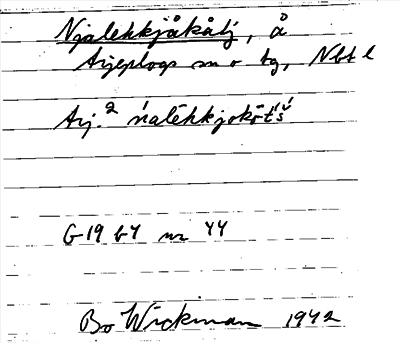 Njalekkjåkåtj, å
Arjeplogs sn o tg, Nbt l
Arj.² ńalēhkjokōt́š́
G 19 b4 nr 44
Bo Wickman 1942